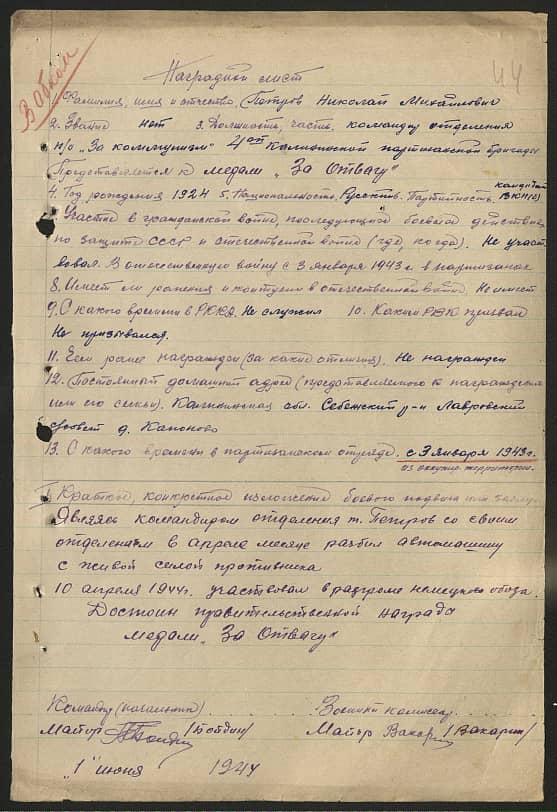 В обком
44
Наградной лист
Фамилия, имя и отчество. Петров Николай Михайлович
2. Звание нет 3. Должность, часть. командир отделения
п/о "За коммунизм" 4ой Калининской партизанской бригады
Представляется к медали "За Отвагу"
4. Год рождения 1924 5. Национальность. Русский 6. Партийность. кандидат ВКП(б)
Участие в гражданской войне, последующих боевых действиях
по защите СССР и отечественной войне (где, когда). Не участ
вовал. В отечественную войну с 3 января 1943 г. в партизанах
8. Имеет ли ранения и контузии в отечественной войне. Не имеет
9. С какого времени в РККА. Не служил 10. Каким РВК призван
Не призывался.
11. Чем ранее награжден (за какие отличия). Не награжден
12. Постоянный домашний адрес (представляемого к награждению
или его семьи). Калининская обл. Себежский р-н Лавровский
с/совет д. Капоново
13. С какого времени в партизанском отряде. с 3 января 1943 г.
из оккупир. территории.
I. Краткое, конкретное изложение боевого подвига или заслуг
Являясь командиром отделения т. Петров со своим
отделением в апреле месяце разбил автомашину
с живой силой противника
10 апреля 1944 г. участвовал в разгроме немецкого обоза.
Достоин правительственной награды
медали "За Отвагу"
Командир (начальник) Военный комиссар
Майор /Бойдин/ Майор Вакарин /Вакарин/
"1" июня 1944